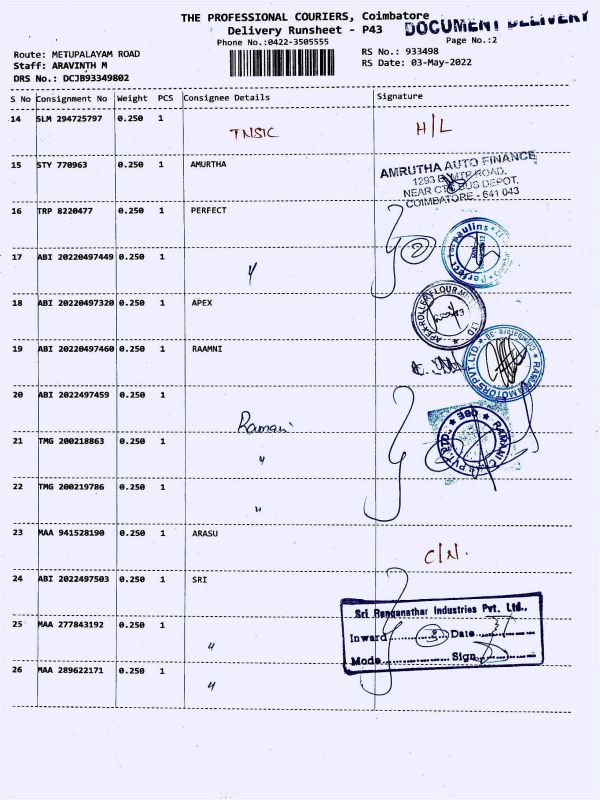 THE PROFESSIONAL COURIERS, Coimbatore
DOCUMENT DELIVERY
Delivery Runsheet - P43
Phone No.:0422-3505555
Page No.:2
Route: METUPALAYAM ROAD
RS No.: 933498
Staff: ARAVINTH M
RS Date: 03-May-2022
DRS No.: DCJB93349802
S No Consignment No Weight PCS Consignee Details Signature
14 SLM 294725797 0.250 1 TNSIC H/L
15 STY 770963 0.250 1 AMURTHA
AMRUTHA AUTO FINANCE
1293 B, MTP ROAD,
NEAR CTC BUS DEPOT,
COIMBATORE - 641 043
16 TRP 8220477 0.250 1 PERFECT
2
17 ABI 20220497449 0.250 1 "
18 ABI 20220497320 0.250 1 APEX
19 ABI 20220497460 0.250 1 RAAMNI
20 ABI 2022497459 0.250 1 Ramani
21 TMG 200218863 0.250 1 "
22 TMG 200219786 0.250 1 "
23 MAA 941528190 0.250 1 ARASU C/N.
24 ABI 2022497503 0.250 1 SRI
Sri Ranganathar Industries Pvt. Ltd.,
25 MAA 277843192 0.250 1 "
Inward 3 Date
Mode Sign
26 MAA 289622171 0.250 1 "